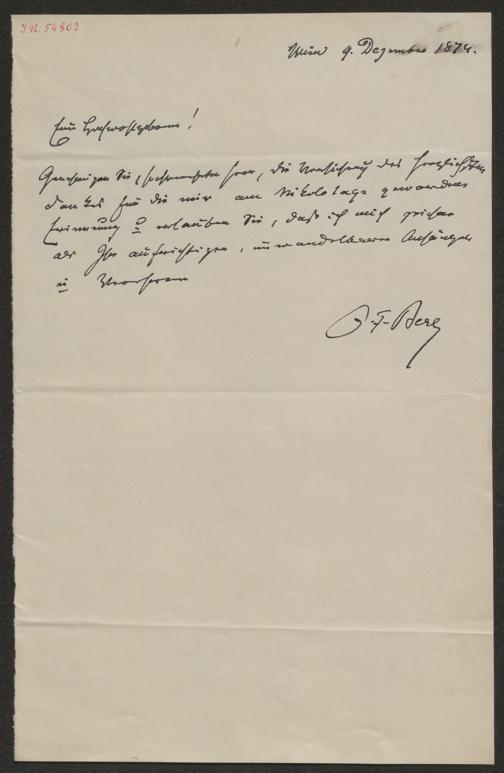 I.N. 54802
Wien 9. Dezember 1874.
Euer Hochwohlgeboren!
Genehmigen Sie, hochverehrter Herr, die Versicherung des herzlichsten
Dankes für die mir am Nikolotage gewordene
Erinnerung u erlauben Sie, daß ich mich zeichne
als Ihr aufrichtiger, unwandelbarer Anhänger
u Verehrer
O. F. Berg